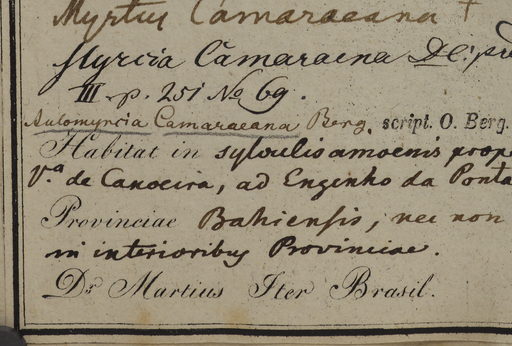 Myrtus Camaraeana †
Myrcia Camaraena DC. pr
III p. 251 No 69.
Aulomyrcia Camaraeana Berg. script. O. Berg.
Habitat in sylvulis amoenis prope
V.ª de Canoeira, ad Engenho da Ponta
Provinciae Bahiensis, nec non
in interioribus Provinciae.
Dr Martius Iter Brasil.